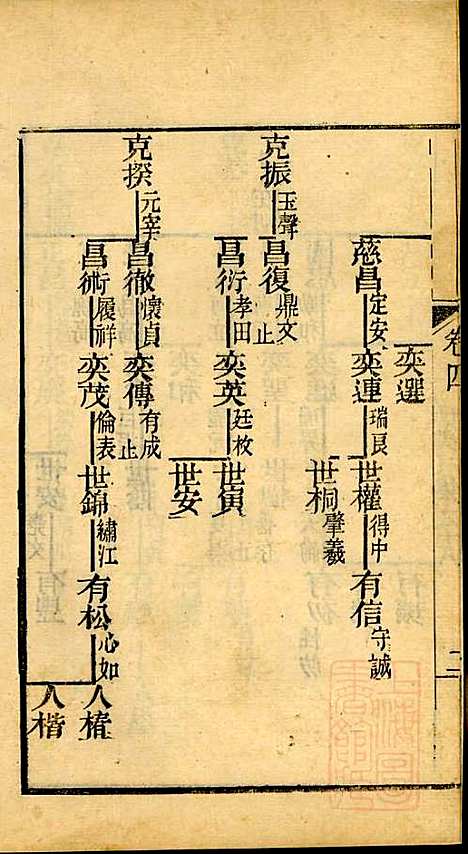 卷四
二
奕選
慈昌 定安 奕連 瑞艮 世權 得中 有信 守誠
世桐 肇羲
克振 玉聲 昌復 鼎文 止
昌衍 孝田 奕英 廷枚 世寅
世安
克揆 元宰 昌徹 懷貞 奕傳 有成 止
昌術 履祥 奕茂 倫表 世錦 繡江 有松 心如 人椿
人楷